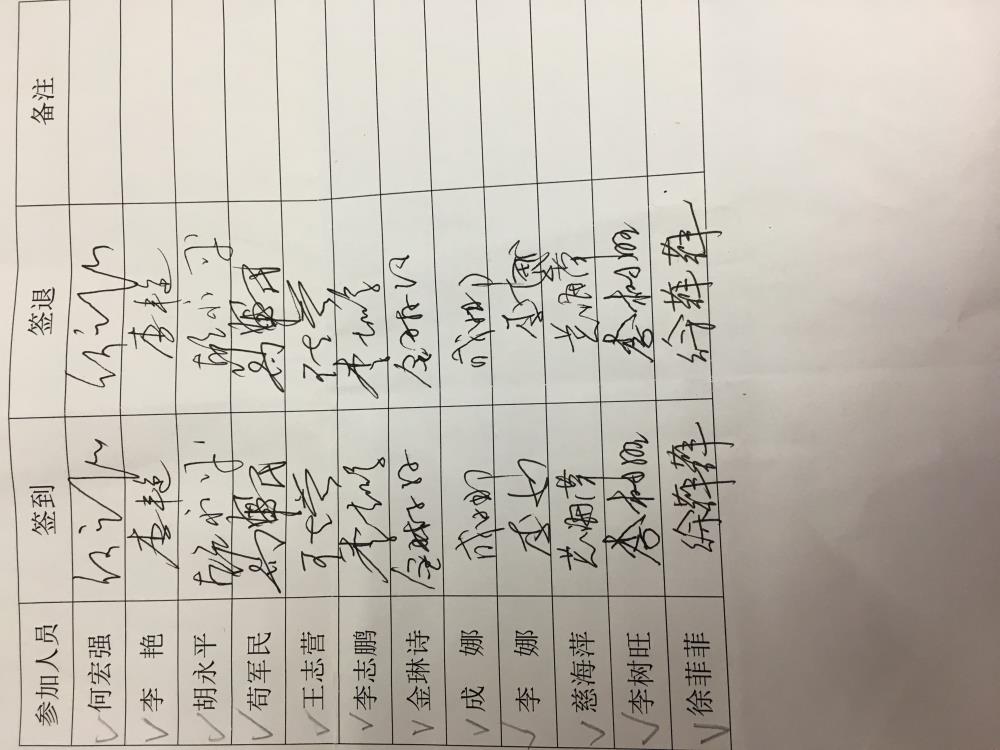 参加人员 签到 签退 备注
何宏强 何宏强 何宏强
李艳 李艳 李艳
胡永平 胡永平 胡永平
苟军民 苟军民 苟军民
王志营 王志营 王志营
李志鹏 李志鹏 李志鹏
金琳诗 金琳诗 金琳诗
成娜 成娜 成娜
李娜 李娜 李娜
慈海萍 慈海萍 慈海萍
李树旺 李树旺 李树旺
徐菲菲 徐菲菲 徐菲菲